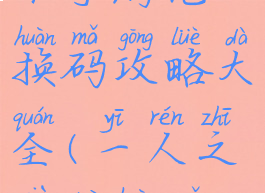 huàn mǎ gōng lüè dà
换码攻略大
quán yī rén zhī
全(一人之